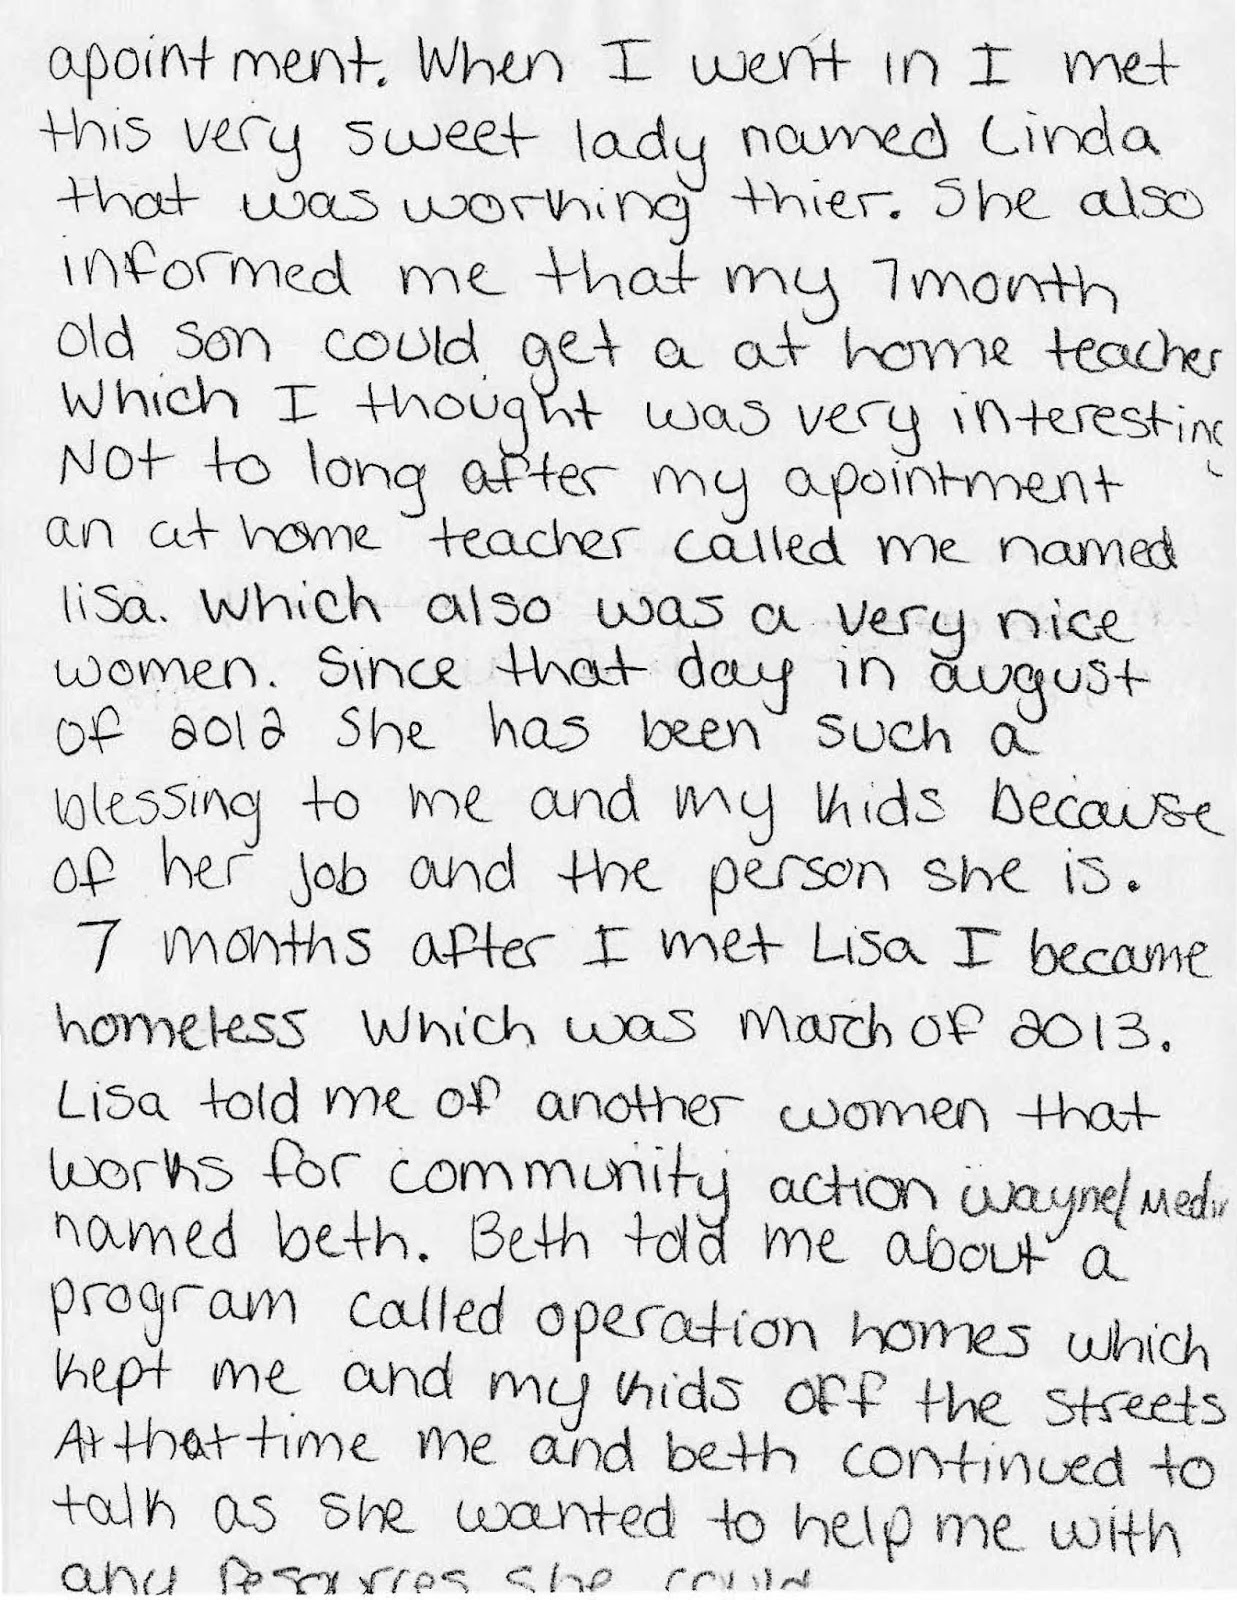 apointment. When I went in I met
this very sweet lady named Linda
that was working thier. She also
informed me that my 7month
old son could get a at home teacher
Which I thought was very interesting
Not to long after my apointment
an at home teacher called me named
lisa. which also was a very nice
women. Since that day in august
of 2012 she has been such a
blessing to me and my kids because
of her job and the person she is.
7 months after I met Lisa I became
homeless which was March of 2013.
Lisa told me of another women that
works for community action wayne/Medi
named beth. Beth told me about a
program called operation homes which
kept me and my kids off the streets
At that time me and beth continued to
talk as she wanted to help me with
any resources she could